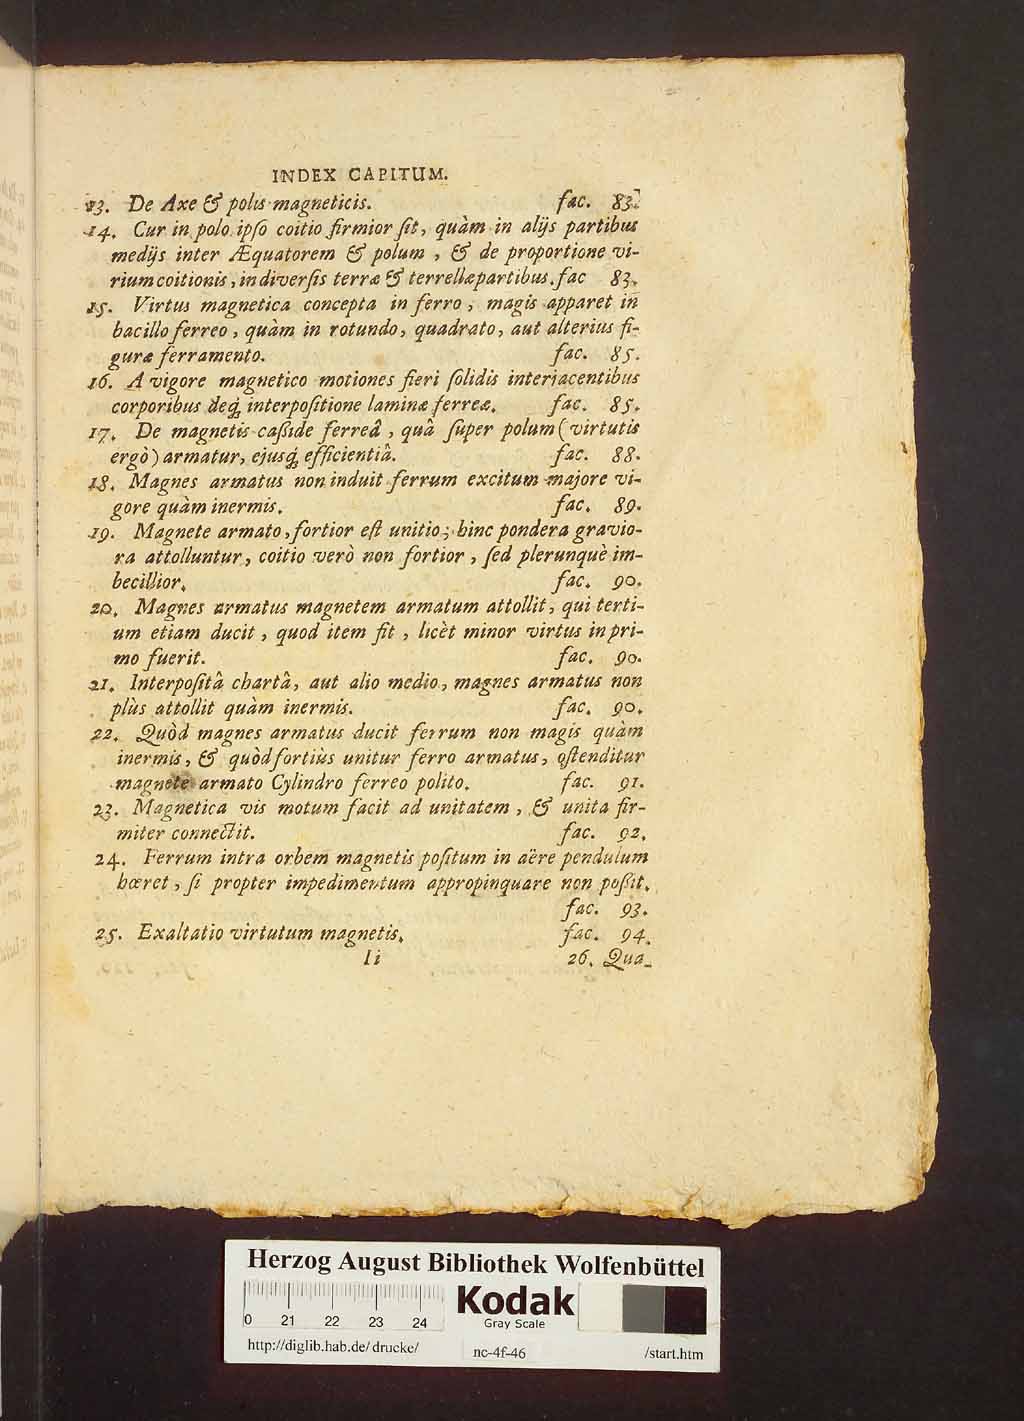 INDEX CAPITUM.
13. De Axe & polis magneticis. fac. 83.
14. Cur in polo ipſo coitio firmior ſit, quàm in alijs partibus
medijs inter Æquatorem & polum, & de proportione vi-
rium coitionis, in diverſis terræ & terrellæ partibus. fac 83.
15. Virtus magnetica concepta in ferro, magis apparet in
bacillo ferreo, quàm in rotundo, quadrato, aut alterius fi-
guræ ferramento. fac. 85.
16. A vigore magnetico motiones fieri ſolidis interjacentibus
corporibus deq́; interpoſitione laminæ ferreæ. fac. 85.
17. De magnetis caßide ferreâ, quâ ſuper polum (virtutis
ergò) armatur, ejusq́; efficientiâ. fac. 88.
18. Magnes armatus non induit ferrum excitum majore vi-
gore quàm inermis. fac. 89.
19. Magnete armato, fortior eſt unitio; hinc pondera gravio-
ra attolluntur, coitio verò non fortior, ſed plerunquè im-
becillior. fac. 90.
20. Magnes armatus magnetem armatum attollit, qui terti-
um etiam ducit, quod item fit, licèt minor virtus in pri-
mo fuerit. fac. 90.
21. Interpoſitâ chartâ, aut alio medio, magnes armatus non
plùs attollit quàm inermis. fac. 90.
22. Quòd magnes armatus ducit ferrum non magis quàm
inermis, & quòd fortiùs unitur ferro armatus, oſtenditur
magnete armato Cylindro ferreo polito. fac. 91.
23. Magnetica vis motum facit ad unitatem, & unita fir-
miter connectit. fac. 92.
24. Ferrum intra orbem magnetis poſitum in aëre pendulum
hœret, ſi propter impedimentum appropinquare non poßit.
fac. 93.
25. Exaltatio virtutum magnetis. fac. 94.
Ii 26. Qua-
Herzog August Bibliothek Wolfenbüttel
0 21 22 23 24
Kodak
Gray Scale
http://diglib.hab.de/drucke/ nc-4f-46 /start.htm